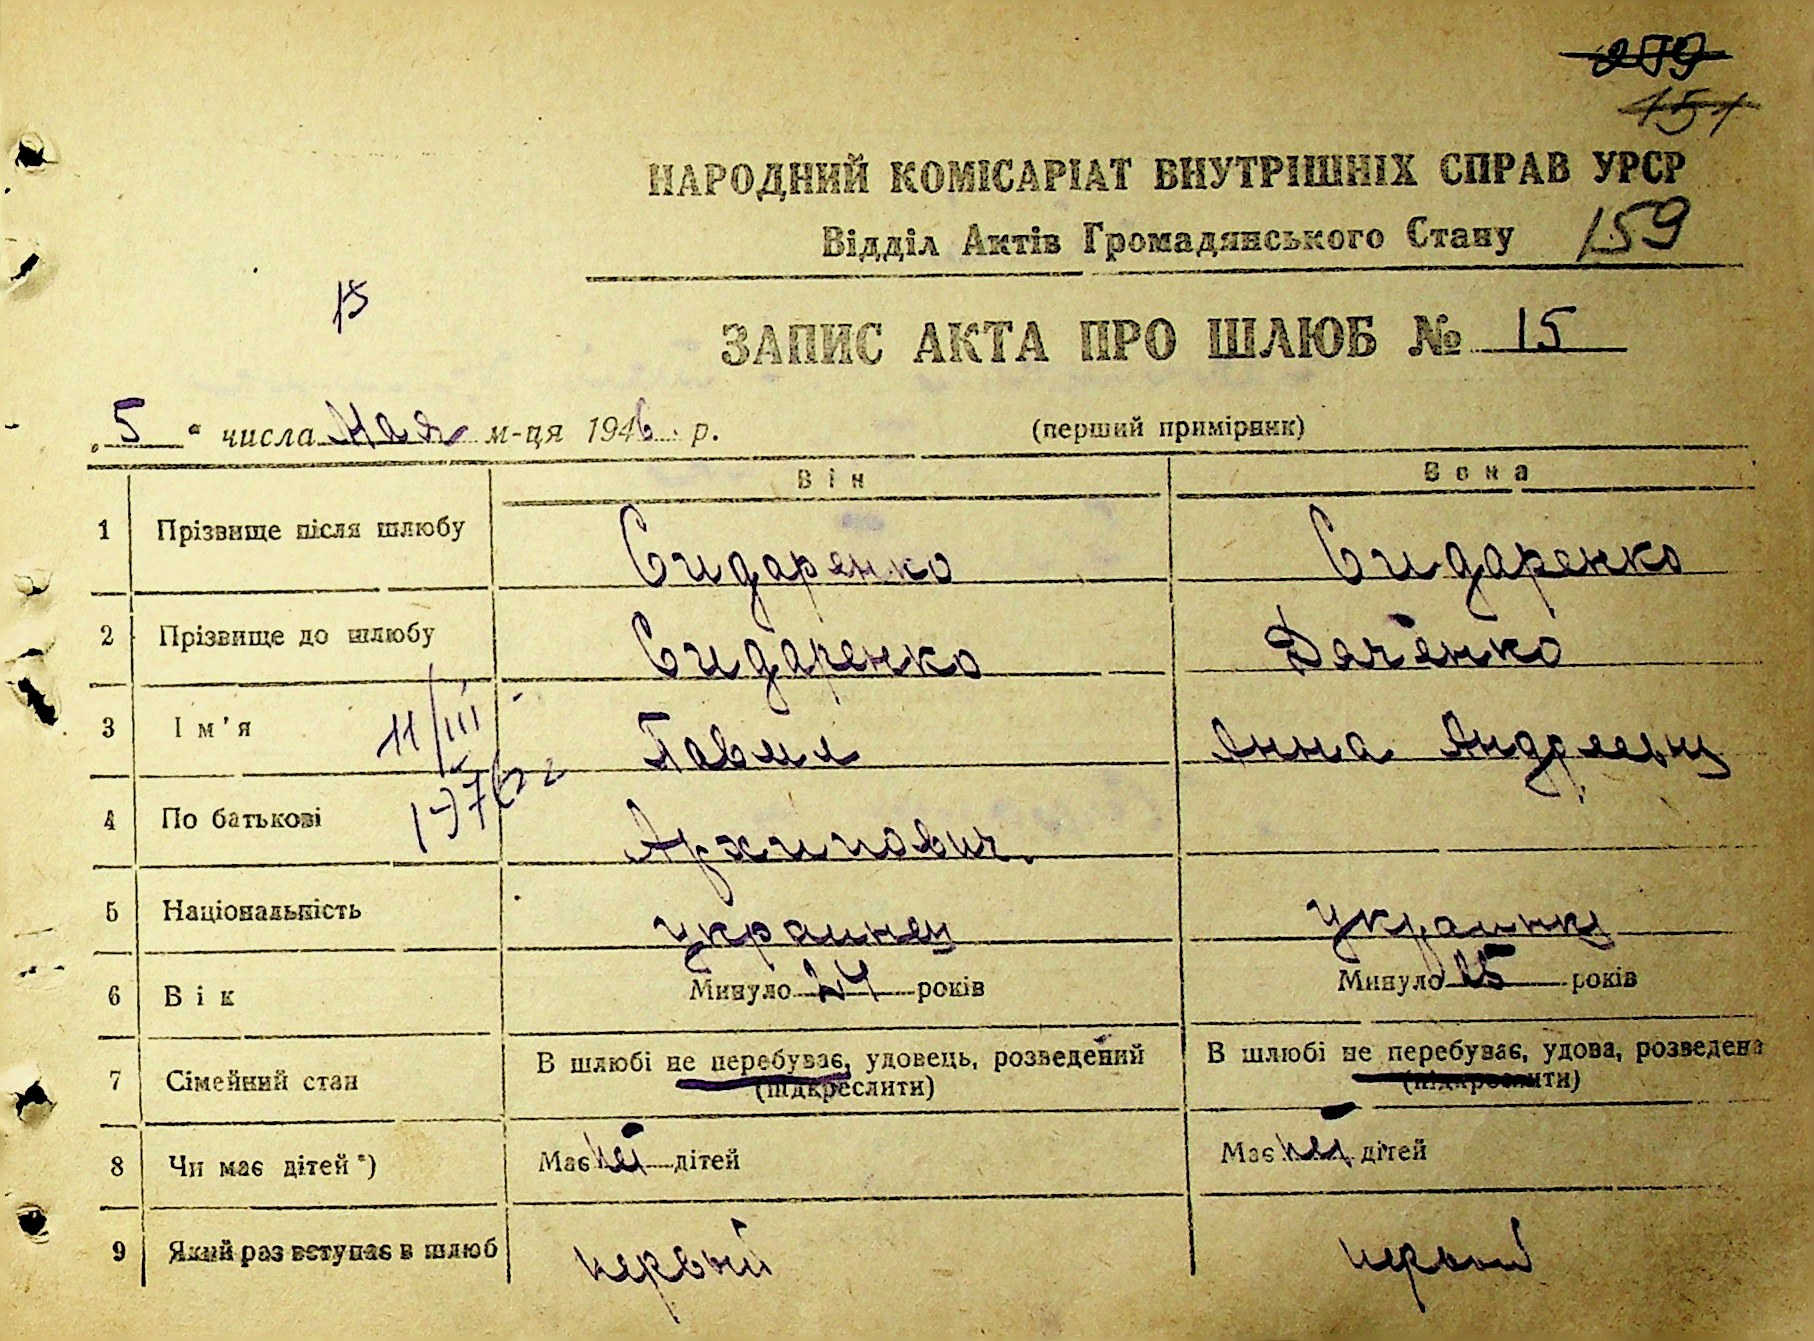 279
151
НАРОДНИЙ КОМІСАРІАТ ВНУТРІШНІХ СПРАВ УРСР
Відділ Актів Громадянського Стану 159
15
ЗАПИС АКТА ПРО ШЛЮБ № 15
„5“ числа Мая м-ця 1946 р. (перший примірник)
Він Вона
1 Прізвище після шлюбу Сидаренко Сидаренко
2 Прізвище до шлюбу Сидаренко Дяченко
3 Ім'я 11/III Павил Анна Андреевн
4 По батькові Архипович.
5 Національність украинец украинк
6 Вік Минуло 24 років Минуло 25 років
7 Сімейний стан В шлюбі не перебуває, удовець, розведений В шлюбі не перебуває, удова, розведена
(підкреслити) (підкреслити)
8 Чи має дітей*) Має нет дітей Має нет дітей
9 Який раз вступає в шлюб первый первый